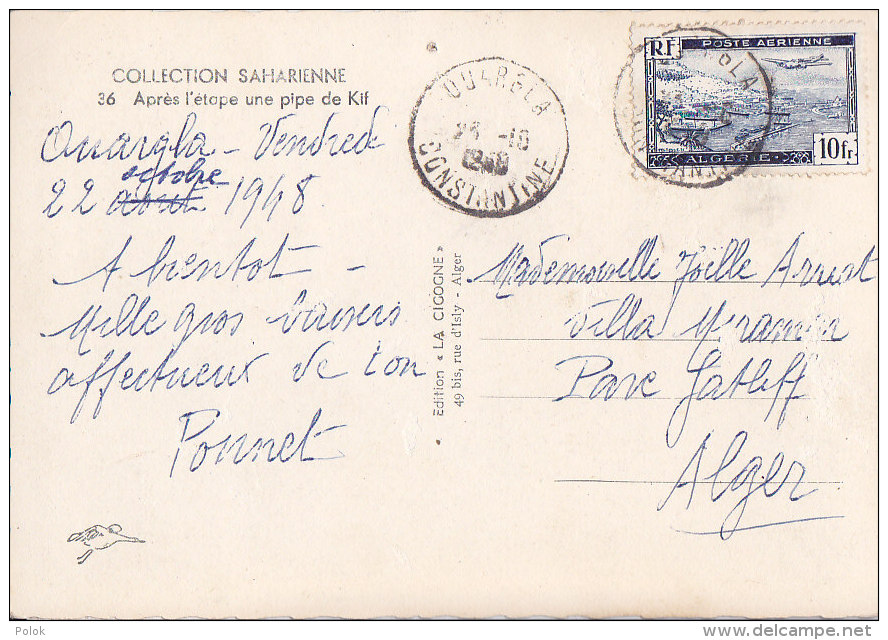 COLLECTION SAHARIENNE
36 Après l'étape une pipe de Kif
Ouargla - Vendredi
octobre
22 août 1948.
A bientot -
Mille gros baisers
affectueux de ton
Ponnet
Edition « LA CIGOGNE »
49 bis, rue d'Isly - Alger
OUARGLA
-10
CONSTANTINE
RF
POSTE AERIENNE
ALGERIE
10fr
Mademoiselle Joëlle
Villa
Parc Gatliff
Alger
Polok
delcampe.net